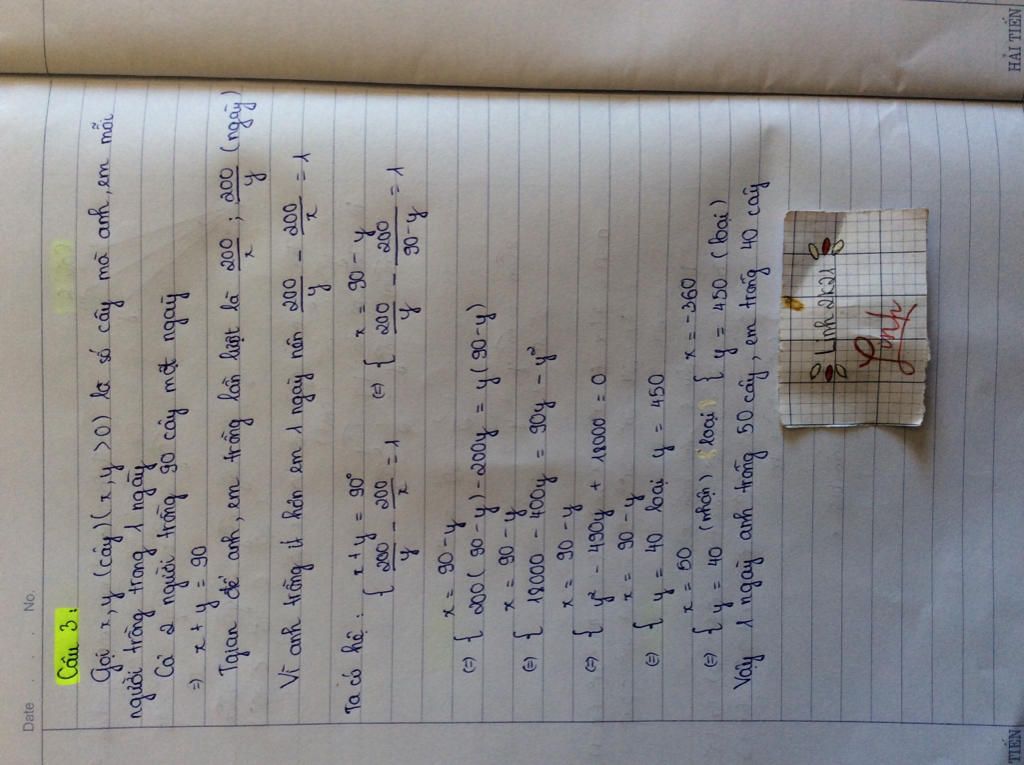 Date No.
Câu 3:
Gọi x, y (cây) (x, y > 0) là số cây mà anh, em mỗi
người trồng trong 1 ngày
Cả 2 người trồng 90 cây một ngày
=> x + y = 90
Tgian để anh, em trồng lần lượt là 200/x ; 200/y (ngày)
Vì anh trồng ít hơn em 1 ngày nên 200/y - 200/x = 1
Ta có hệ: { x + y = 90° ; 200/y - 200/x = 1 (=) { x = 90 - y ; 200/y - 200/(90-y) = 1
(=) { x = 90 - y
200(90-y) - 200y = y(90-y)
(=) { x = 90 - y
18000 - 400y = 90y - y²
(=) { x = 90 - y
y² - 490y + 18000 = 0
(=) { x = 90 - y
y = 40 loại y = 450
(=) { x = 50 { x = -360
y = 40 (nhận) loại y = 450 (loại)
Vậy 1 ngày anh trồng 50 cây, em trồng 40 cây
Linh 2k21
Linh
TIẾN
HẢI TIẾN